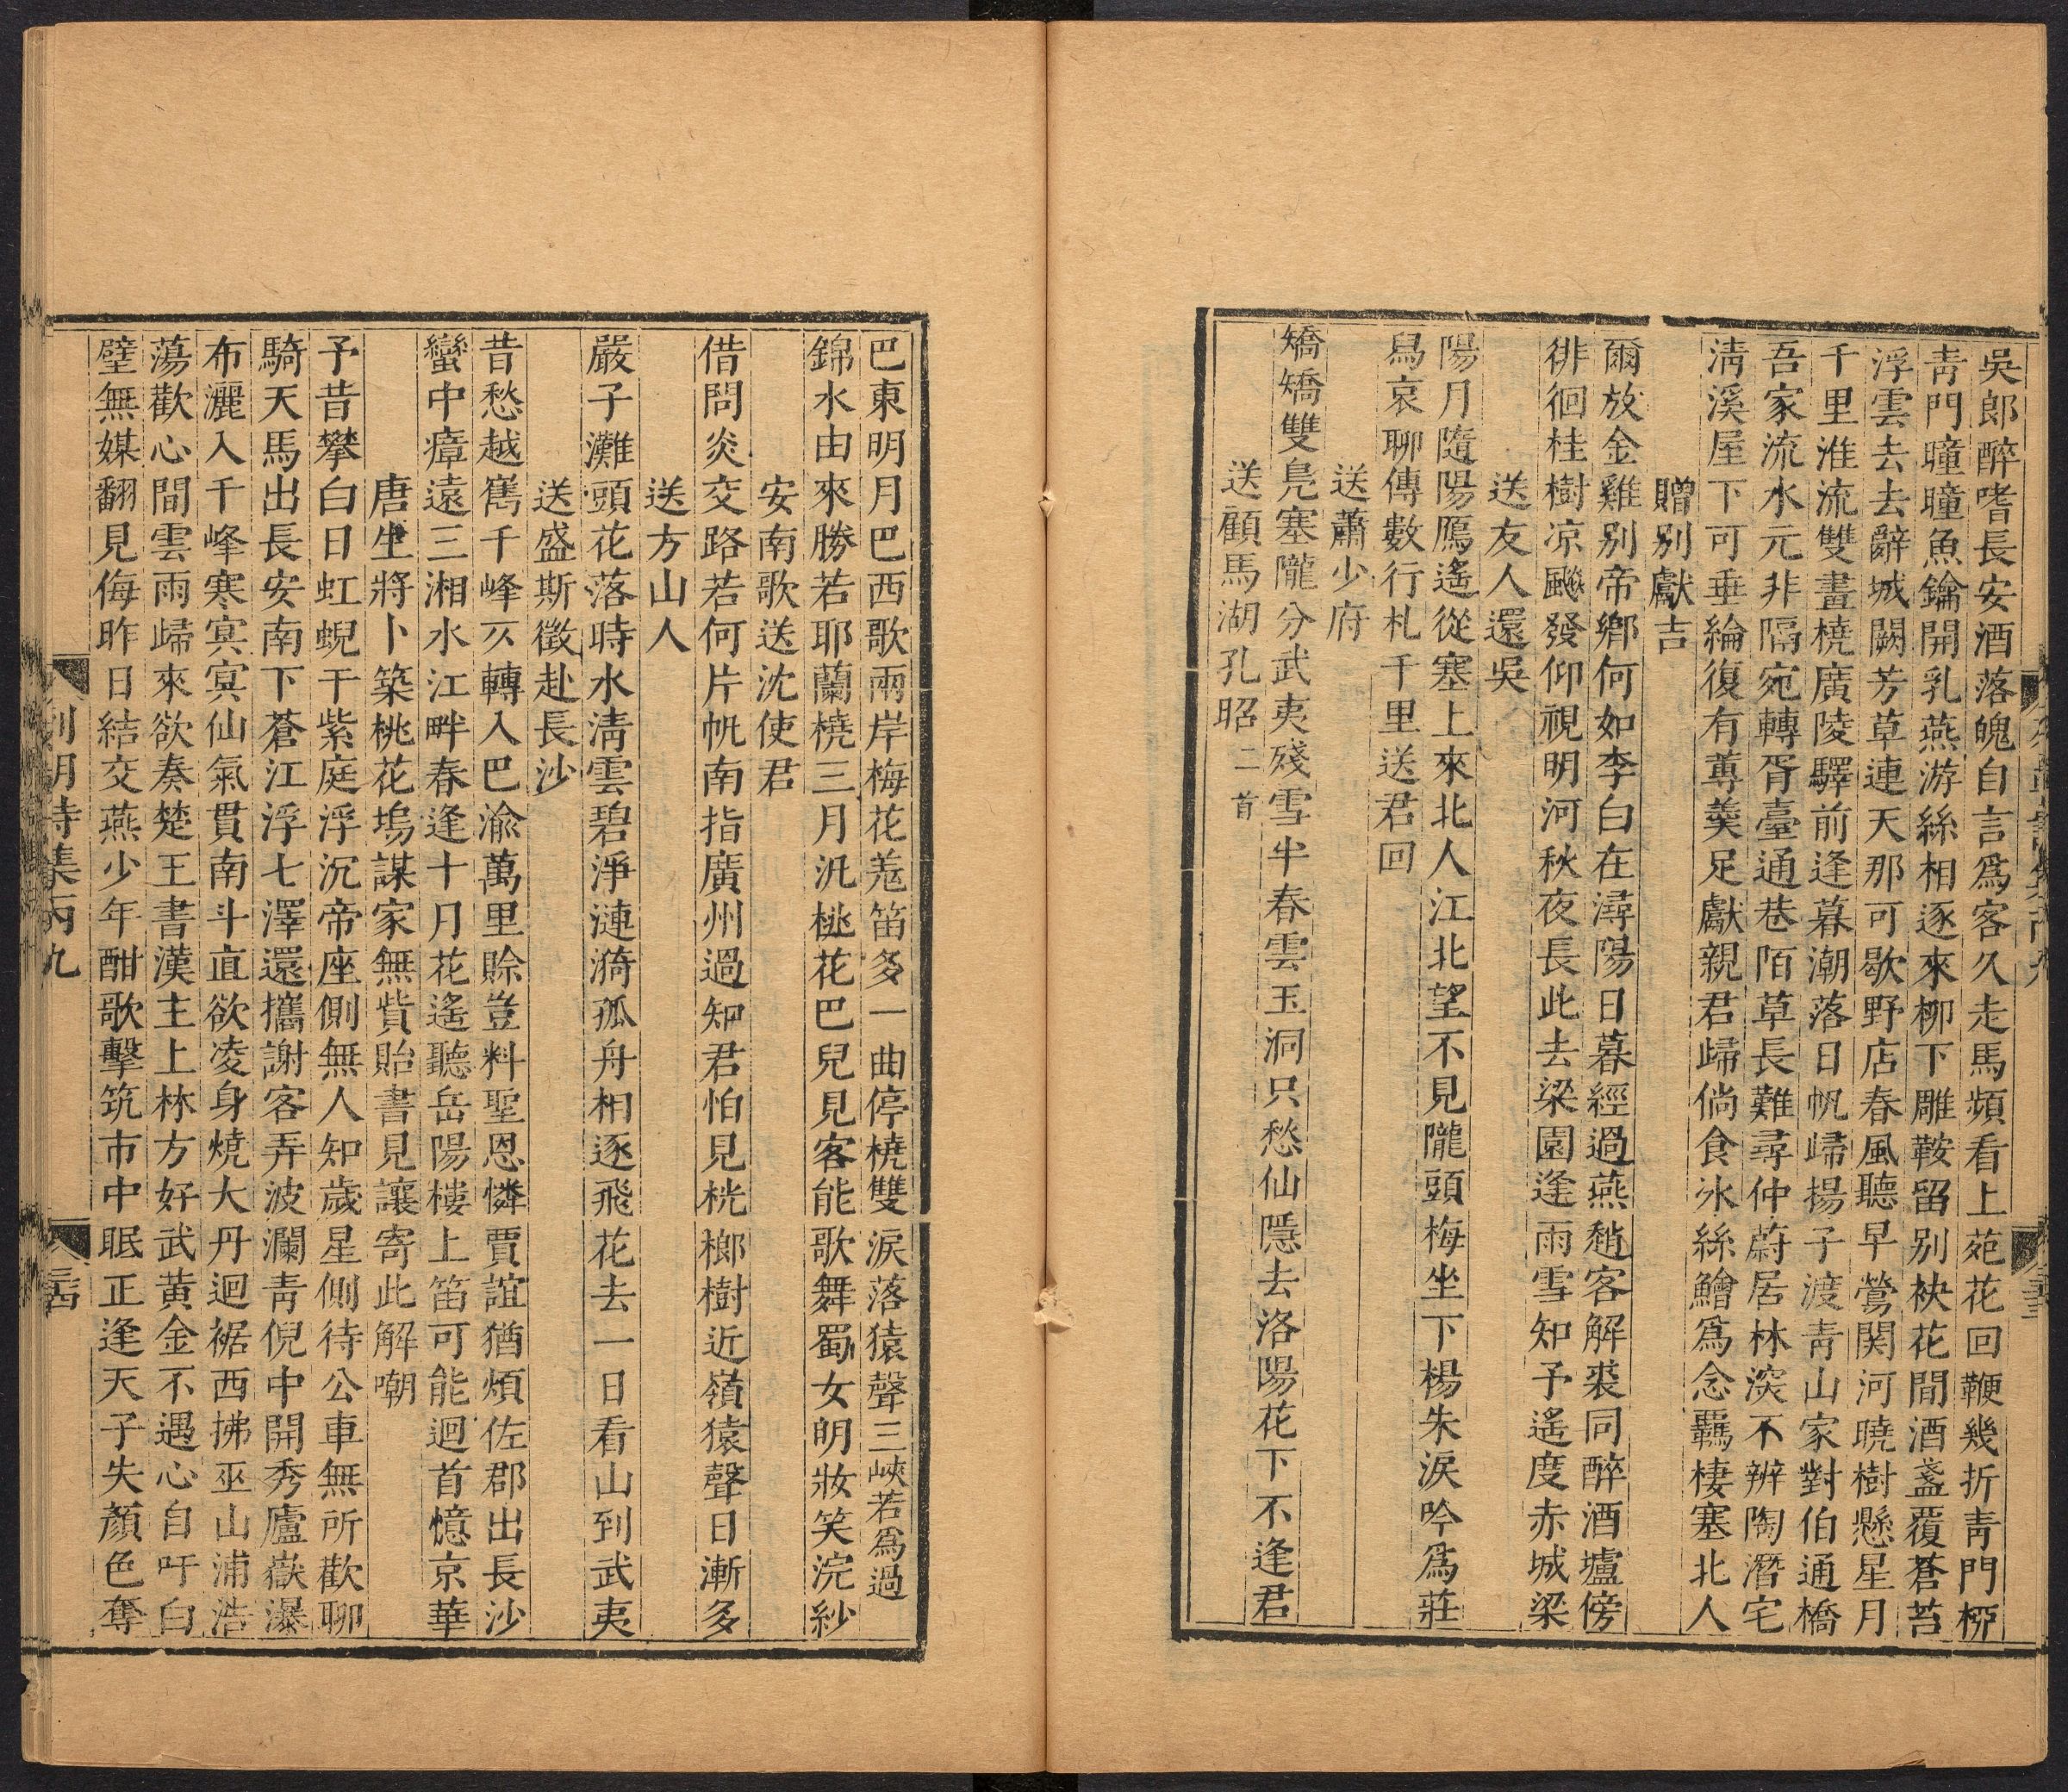 吳郎醉嗜長安酒落魄自言爲客久走馬頻看上苑花回鞭幾折靑門柳
靑門曈曈魚鑰開乳燕游絲相逐來柳下雕鞍留别袂花間酒盞覆蒼苔
浮雲去去辭城闕芳草連天那可歇野店春風聽早鶯関河曉樹懸星月
千里淮流雙畫橈廣陵驛前逢暮潮落日帆歸揚子渡靑山家對伯通橋
吾家流水元非隔宛轉胥臺通巷陌草長難尋仲蔚居林深不辨陶潛宅
淸溪屋下可垂綸復有蓴羹足獻親君歸倘食冰絲鱠爲念羈棲塞北人
贈别獻吉
爾放金雞别帝鄉何如李白在潯陽日暮經過燕趙客解裘同醉酒壚傍
徘徊桂樹凉飈發仰視明河秋夜長此去梁園逢雨雪知予遙度赤城梁
送友人還吳
陽月隨陽鴈遙從塞上來北人江北望不見隴頭梅坐下楊朱淚吟爲莊
舄哀聊傳數行札千里送君回
送蕭少府
矯矯雙鳧塞隴分武夷殘雪半春雲玉洞只愁仙隱去洛陽花下不逢君
送顧馬湖孔昭二首
巴東明月巴西歌兩岸梅花羗笛多一曲停橈雙淚落猿聲三峽若爲過
錦水由來勝若耶蘭橈三月汎桃花巴兒見客能歌舞蜀女明妝笑浣紗
安南歌送沈使君
借問炎交路若何片帆南指廣州過知君怕見桄榔樹近嶺猿聲日漸多
送方山人
嚴子灘頭花落時水淸雲碧淨漣漪孤舟相逐飛花去一日看山到武夷
送盛斯徵赴長沙
昔愁越嶲千峰又轉入巴渝萬里賒豈料聖恩憐賈誼猶煩佐郡出長沙
蠻中瘴遠三湘水江畔春逢十月花遙聽岳陽樓上笛可能迴首憶京華
唐生將卜築桃花塢謀家無貲貽書見讓寄此解嘲
予昔攀白日虹蜺干紫庭浮沉帝座側無人知歲星側待公車無所歡聊
騎天馬出長安南下蒼江浮七澤還攜謝客弄波瀾靑倪中開秀廬嶽瀑
布灑入千峰寒寅寅仙氣貫南斗直欲凌身燒大丹迴裾西拂巫山浦浩
蕩歡心間雲雨歸來欲奏楚王書漢主上林方好武黄金不遇心自吁白
璧無媒翻見侮昨日結交燕少年酣歌擊筑市中眠正逢天子失顏色奪
明詩集丙九